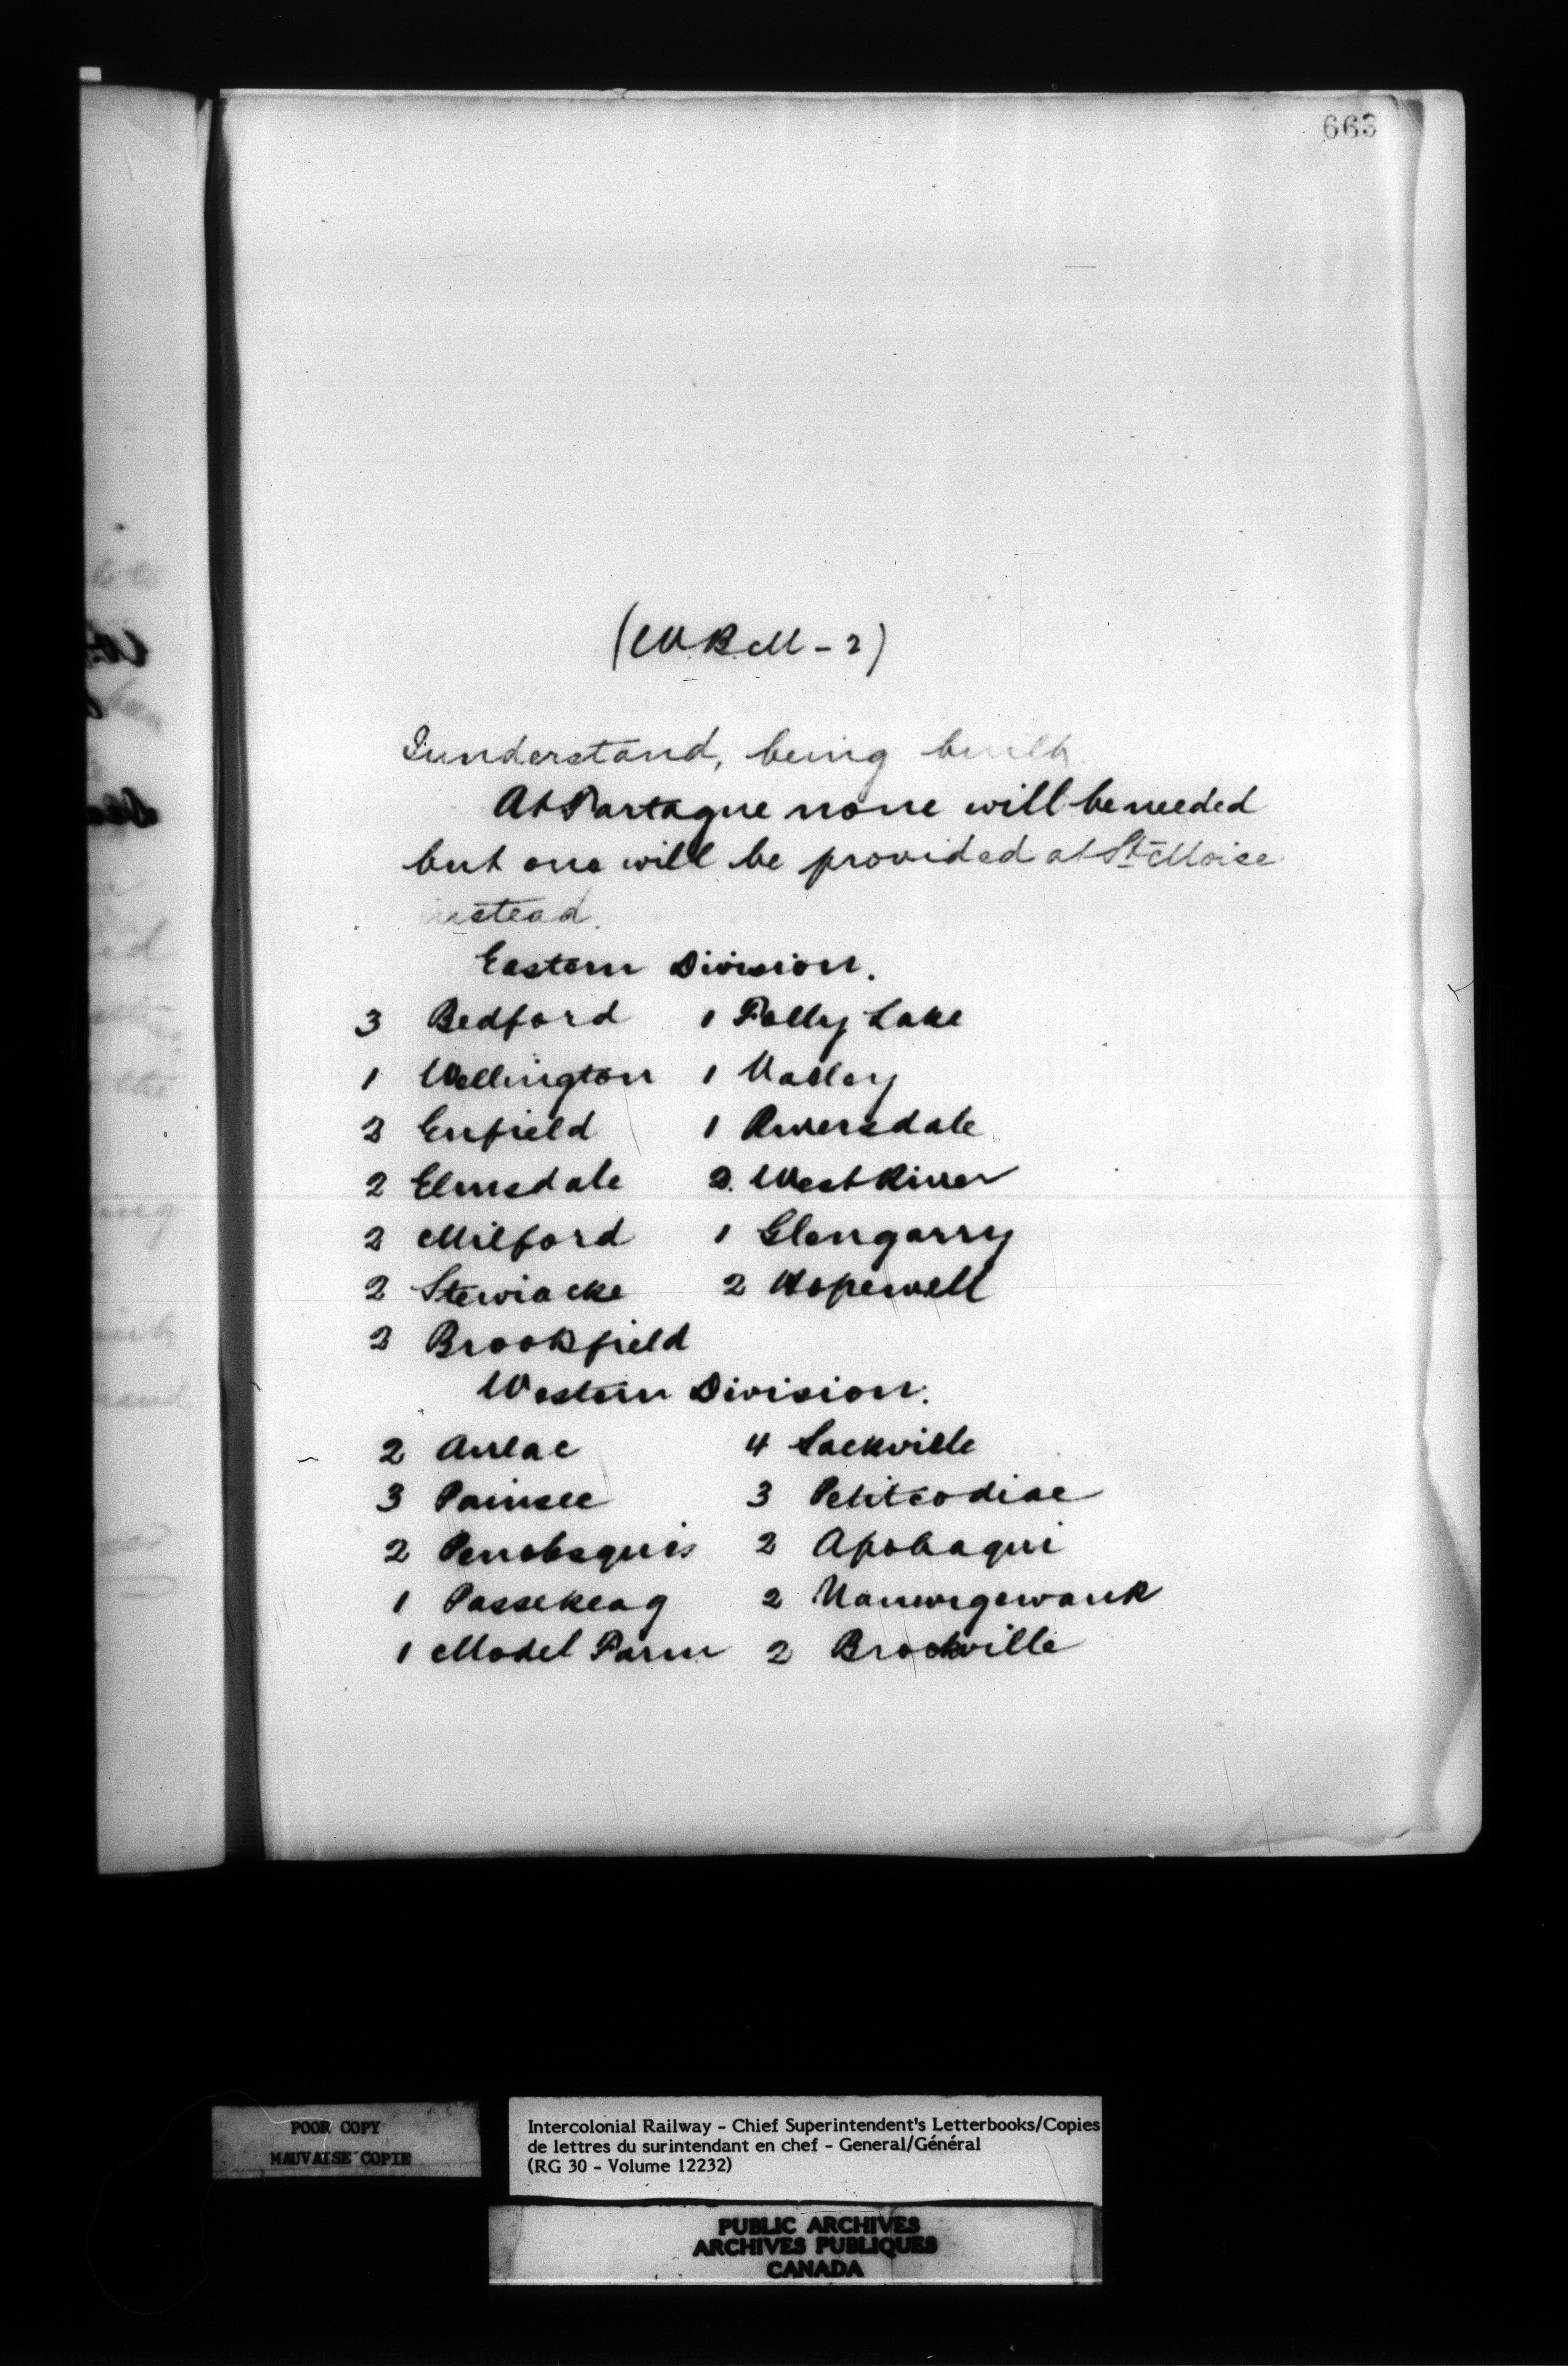 663
(W.R.M - 2)
I understand, being built.
At Partague none will be needed
but one will be provided at St Moise
instead.
Eastern Division.
3 Bedford 1 Folly Lake
1 Wellington 1 Valley
2 Enfield 1 Riversdale
2 Elmsdale 2. West River
2 Milford 1 Glengarry
2 Stewiacke 2 Hopewell
2 Brookfield
Western Division.
2 Aulac 4 Sackville
3 Painsec 3 Petitcodiac
2 Penobsquis 2 Apohaqui
1 Passekeag 2 Nauwigewauk
1 Model Farm 2 Brookville
POOR COPY
MAUVAISE COPIE
Intercolonial Railway - Chief Superintendent's Letterbooks/Copies
de lettres du surintendant en chef - General/Général
(RG 30 - Volume 12232)
PUBLIC ARCHIVES
ARCHIVES PUBLIQUES
CANADA